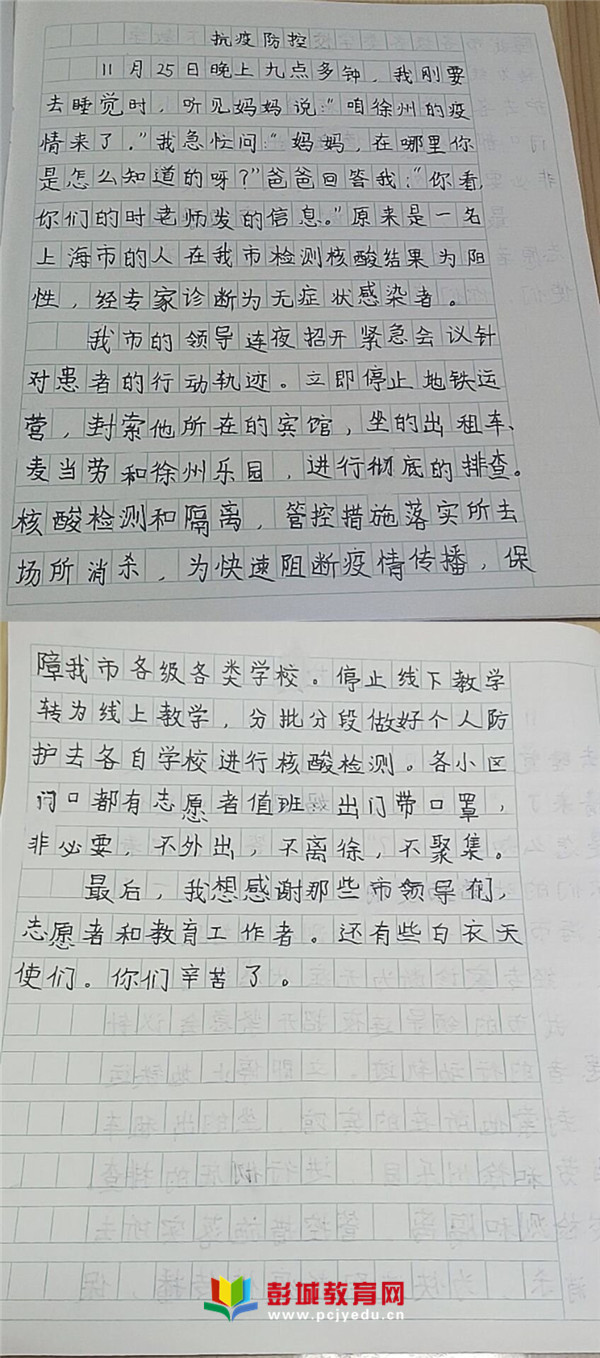 抗疫防控
11月25日晚上九点多钟，我刚要
去睡觉时，听见妈妈说：“咱徐州的疫
情来了。”我急忙问“妈妈，在哪里你
是怎么知道的呀？”爸爸回答我：“你看，
你们的时老师发的信息。”原来是一名
上海市的人在我市检测核酸结果为阳
性，经专家诊断为无症状感染者。
我市的领导连夜招开紧急会议针
对患者的行动轨迹。立即停止地铁运
营，封索他所在的宾馆，坐的出租车、
麦当劳和徐州乐园，进行彻底的排查。
核酸检测和隔离，管控措施落实所去
场所消杀，为快速阻断疫情传播，保
障我市各级各类学校。停止线下教学
转为线上教学，分批分段做好个人防
护去各自学校进行核酸检测。各小区
门口都有志愿者值班，出门带口罩，
非必要，不外出，不离徐，不聚集。
最后，我想感谢那些市领导们，
志愿者和教育工作者。还有些白衣天
使们。你们辛苦了。
彭城教育网
www.pcjyedu.com